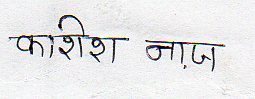 काशीश नाज़